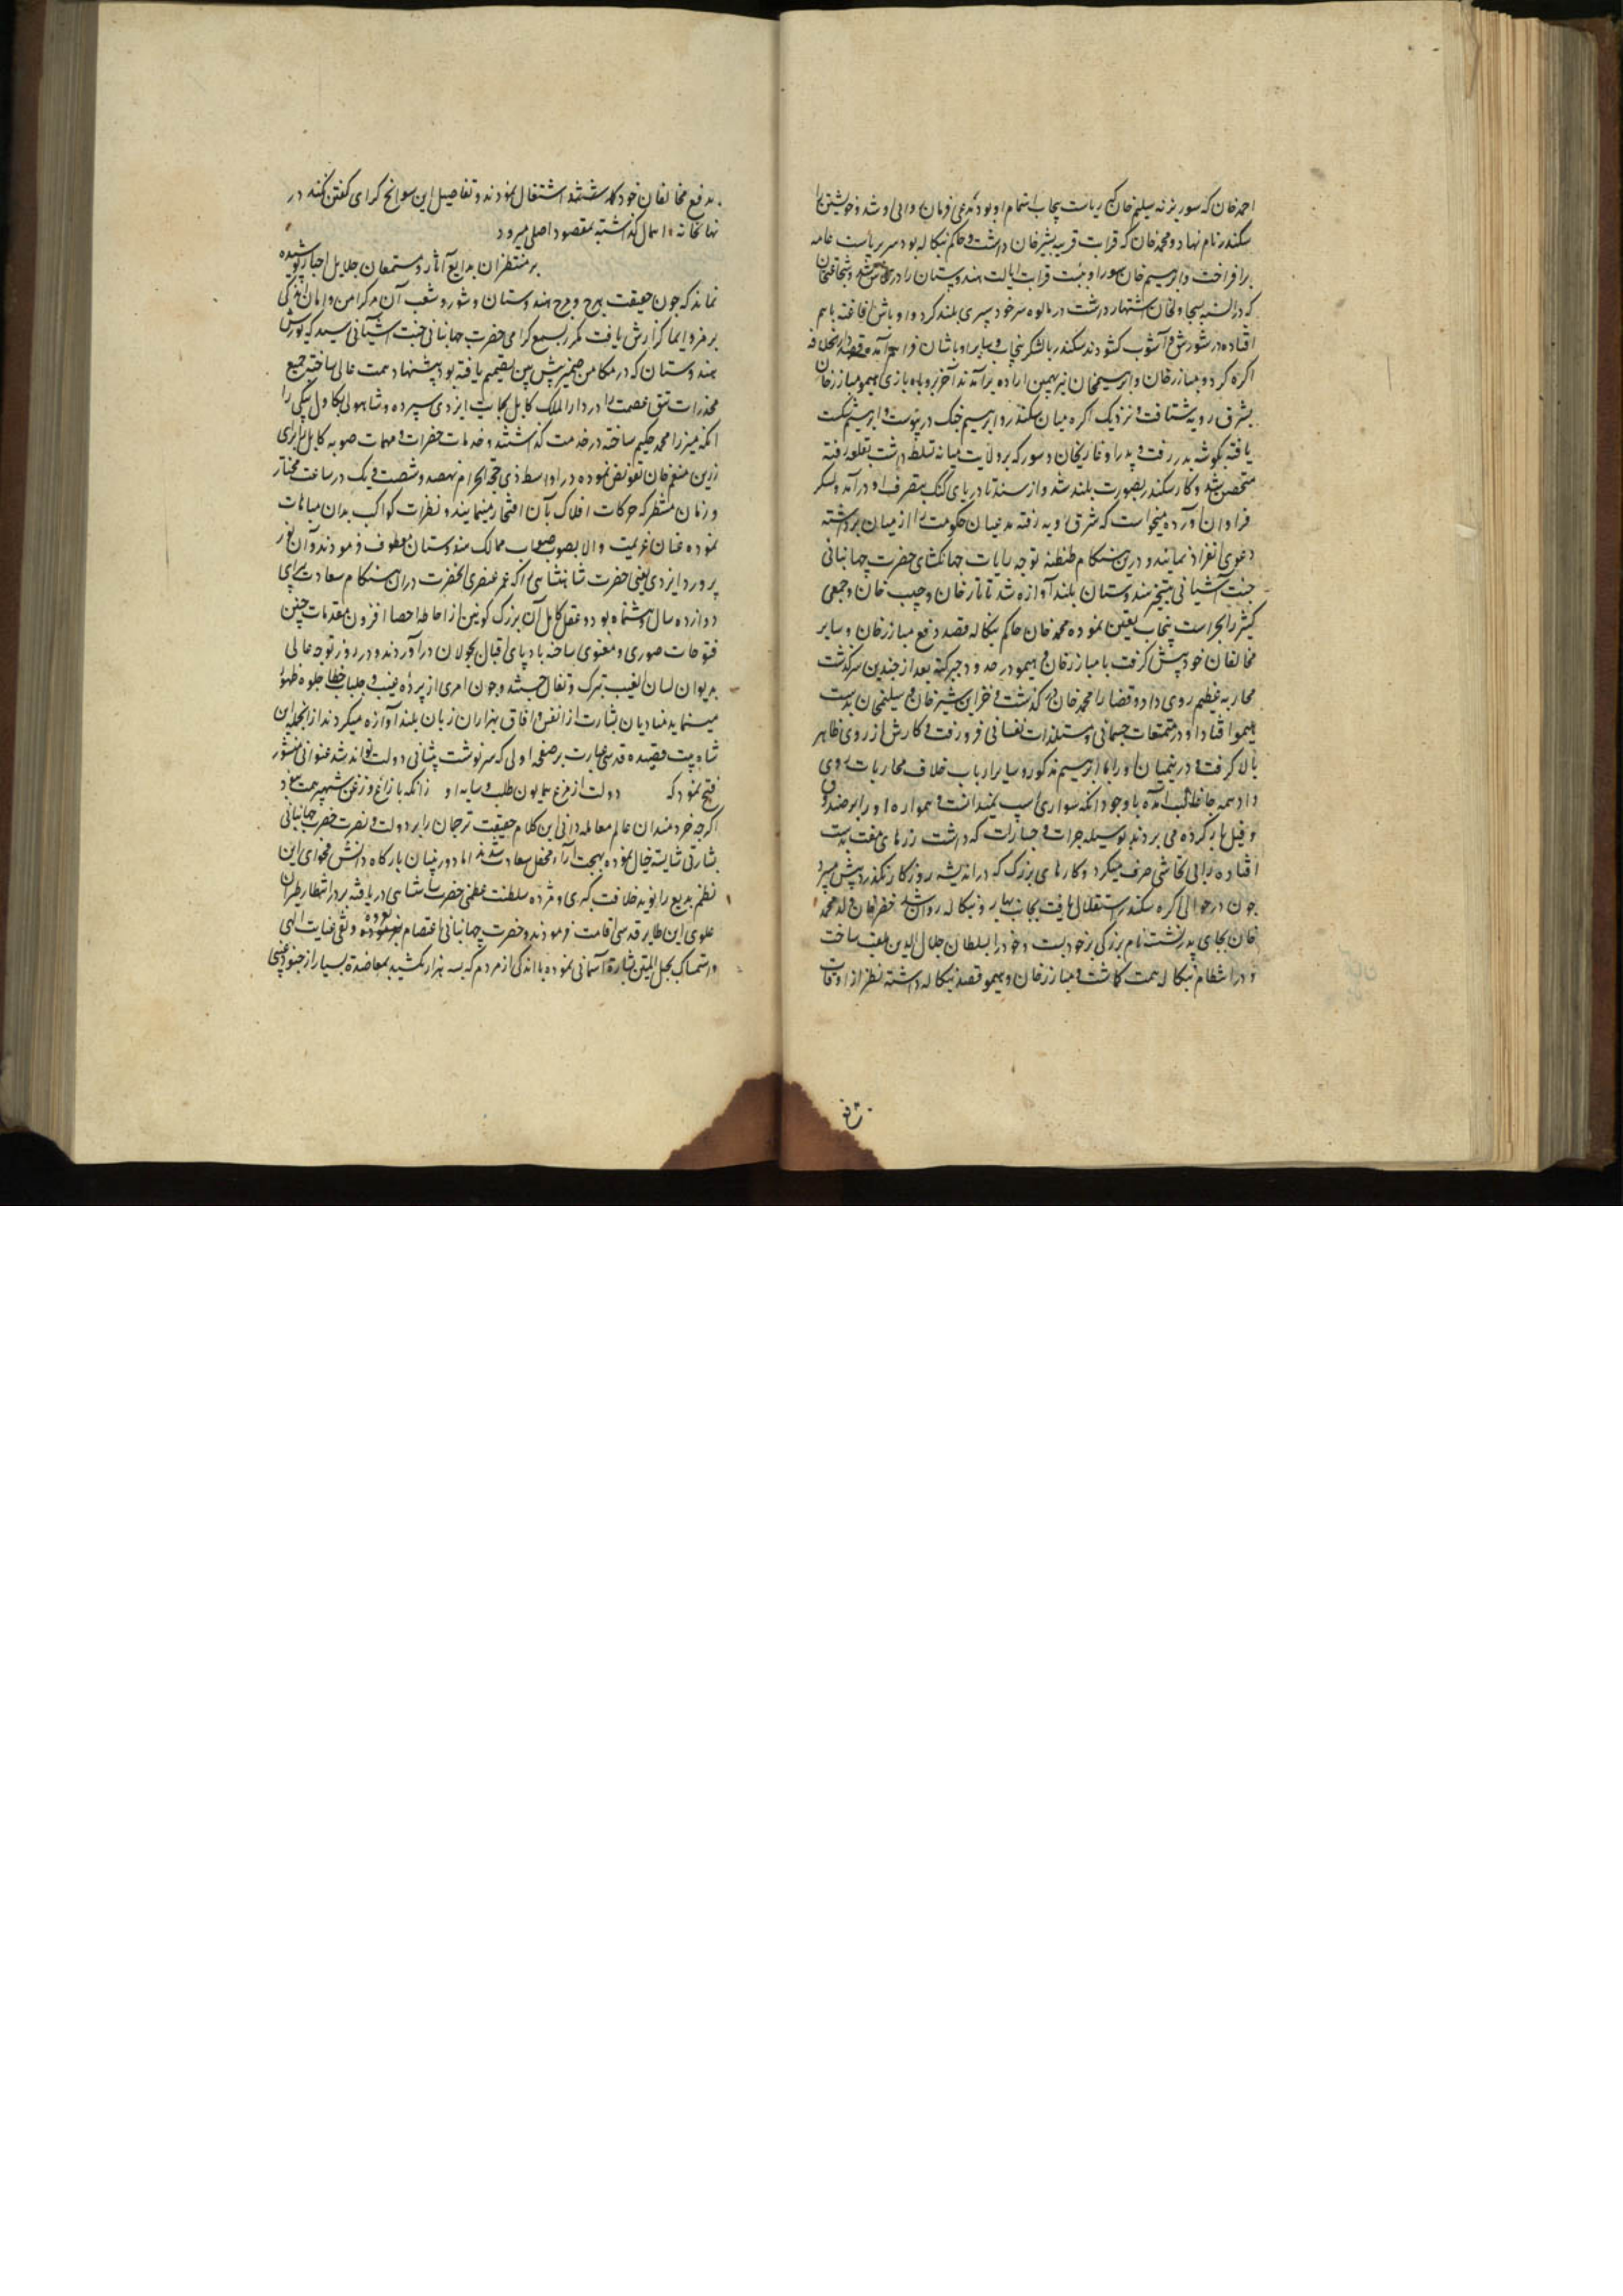 احمد خان که سور یزنه سلیم خان کی ریاست پنجاب باهتمام او بود مدعی فرمان روائی او شد و خویشتن را
سکندر نام نهاد و محمد خان که قرابت قریبه بشیر خان داشت و حاکم بنکاله بود سر بریاست عامه
برافراخت و ابرهیم خان سور او بنسبت قرابت ایالت هندوستان را در شد و شجاعتخان
که در السنه بسجاولخان اشتهار داشت در مالوه سر خود سری بلند کرد و اوباش افاغنه باهم
افتاده در شورش و آشوب کشودند سکندر بالشکر پنجاب و سایر اوباشان فراهم آمده قصد دارالخلافه
اکره کرد و مبازرخان و ابرهیمخان نیز بهمین اراده برآمدند آخر بروباه بازی هیمو مبازرخان
بشرق رویه شتافت و نزدیک اکره میان سکندر و ابرهیم جنک در پیوست و ابرهیم شکست
یافته بکوشه بدر رفت و پدر او غازیخان سور که بر ولایت میانه تسلط داشت بقلعه رفته
متحصن شد و کار سکندر بصورت بلند شد و از سند تا دریای کنک بتصرف او درآمد و لشکر
فراوان آورده میخواست که بشرق رویه رفته مدعیان حکومت را از میان برداشته
دعوی انفراد نمایند و درین هنکام طنطنه توجه رایات جهانکشای حضرت جهانبانی
جنت آشیانی بتسخیر هندوستان بلند آوازه شد تاتار خان و حبیب خان و جمعی
کثیر را بحراست پنجاب تعین نموده محمد خان حاکم بنکاله قصد دفع مبازرخان و سایر
مخالفان خود پیش کرفت با مبازرخان و هیمو در حدود چپرکته بعد از چندین سرکذشت
محاربه عظیم روی داد و قضا را محمد خان در کذشت و خزاین شیرخان و سلیمخان بدست
هیمو افتاد او در تمتعات جسمانی و مستلذات نفسانی فرو رفت و کارش از روی ظاهر
بالا کرفت و درینمیان او را با ابرهیم مذکور و سایر ارباب خلاف محاربات روی
داد همه جا غالب آمده باوجود آنکه سواری اسپ نمیدانست و همواره او را بر صندوق
و فیل بار کرده می بردند بوسیله جرات و جسارت که داشت زرهای مفت بدست
افتاده را بی تحاشی صرف میکرد و کارهای بزرک که در اندیشه روزکار نکذرد پیش میبرد
چون در حوالی اکره سکندر استقلال یافت بجانب بهار و بنکاله روان شد خضرخان ولد محمد
خان بجای پدر نشست نام بزرکی بر خود بست و خود را بسلطان جلال الدین ملقب ساخت
و در انتظام بنکاله همت کماشت و مبازرخان و هیمو قصد بنکاله داشته نظر از اوقات
بدفع مخالفان خود کذاشتند و اشتغال نمودند و تفاصیل این سوانح کرای کفتن نکند در
نهانخانه اهمال کذاشته بمقصود اصلی میرود
بر منتظران بدایع آثار و مستمعان جلایل اخبار پوشیده
نماند که چون حقیقت هرج و مرج هندوستان و شور و شغب آن مرکز امن و امان بزکی
برمز و ایما کزارش یافت مکرر بسمع کرامی حضرت جهانبانی جنت آشیانی رسید که یورش
هندوستان که در مکامن ضمیر پیش بین تصمیم یافته بود پیشنهاد همت عالی ساخته جمیع
مخدرات تتق عصمت را در دارالملک کابل بجانب ایزدی سپرده و شاه ولی بکاول بیکی را
اتکه میرزا محمد حکیم ساخته در خدمت کذاشتند و خدمات حضرات و مهمات صوبه کابل برای
زرین منعم خان تفویض نموده در اواسط ذی حجة الحرام نهصد و شصت و یک در ساعت مختار
و زمان منتظر که حرکات افلاک بآن افتخار مینمایند و نظرات کواکب بدان مباهات
نموده عنان عزیمت والا بصوب صواب ممالک هندوستان معطوف فرمودند و آن نور
پرورد ایزدی یعنی حضرت شاهنشاهی را که عمر عنصری آنحضرت دران هنکام سعادت پیرای
دوازده سال و هشت ماه بود و عقل کامل آن بزرک کونین از احاطه احصا افزون مقدمات چنین
فتوحات صوری و معنوی ساخته باد پای اقبال بجولان درآوردند و در روز توجه عالی
بدیوان لسان الغیب تبرک و تفال جستند و چون امری از پرده غیب و جلباب خفا جلوه ظهور
مینماید منادیان بشارت از انفس و افاق بهزاران زبان بلند آوازه میکردند از انجمله این
شاه بیت قصیده قدسی عبارت بر صفحه اولی که سرنوشت پیشانی دولت تواند شد عنوانی منشور
فتح نمود که دولت از مرغ همایون طلب و سایه او زانکه با زاغ و زغن شهپر همت نبود
اکرچه خردمندان عالم معامله دانی این کلام حقیقت ترجمان را بر دولت و نصرت حضرت جهانبانی
بشارتی شایسته خیال نموده بهجت آراء محفل سعادت شدند اما دوربینان بارکاه دانش فحوای این
نظم بدیع را نوید خلافت کبری و مژده سلطنت عظمی حضرت شاهنشاهی دریافته بر در انتظار طیران
علوی این طایر قدسی اقامت فرمودند و حضرت جهانبانی اعتصام بعروه وثقی عنایت الهی
و استمساک بحبل المتین بشارة آسمانی نموده با اندکی از مردم که بسه هزار نمیکشید بمعاضدة بسیار از جنود غیبی